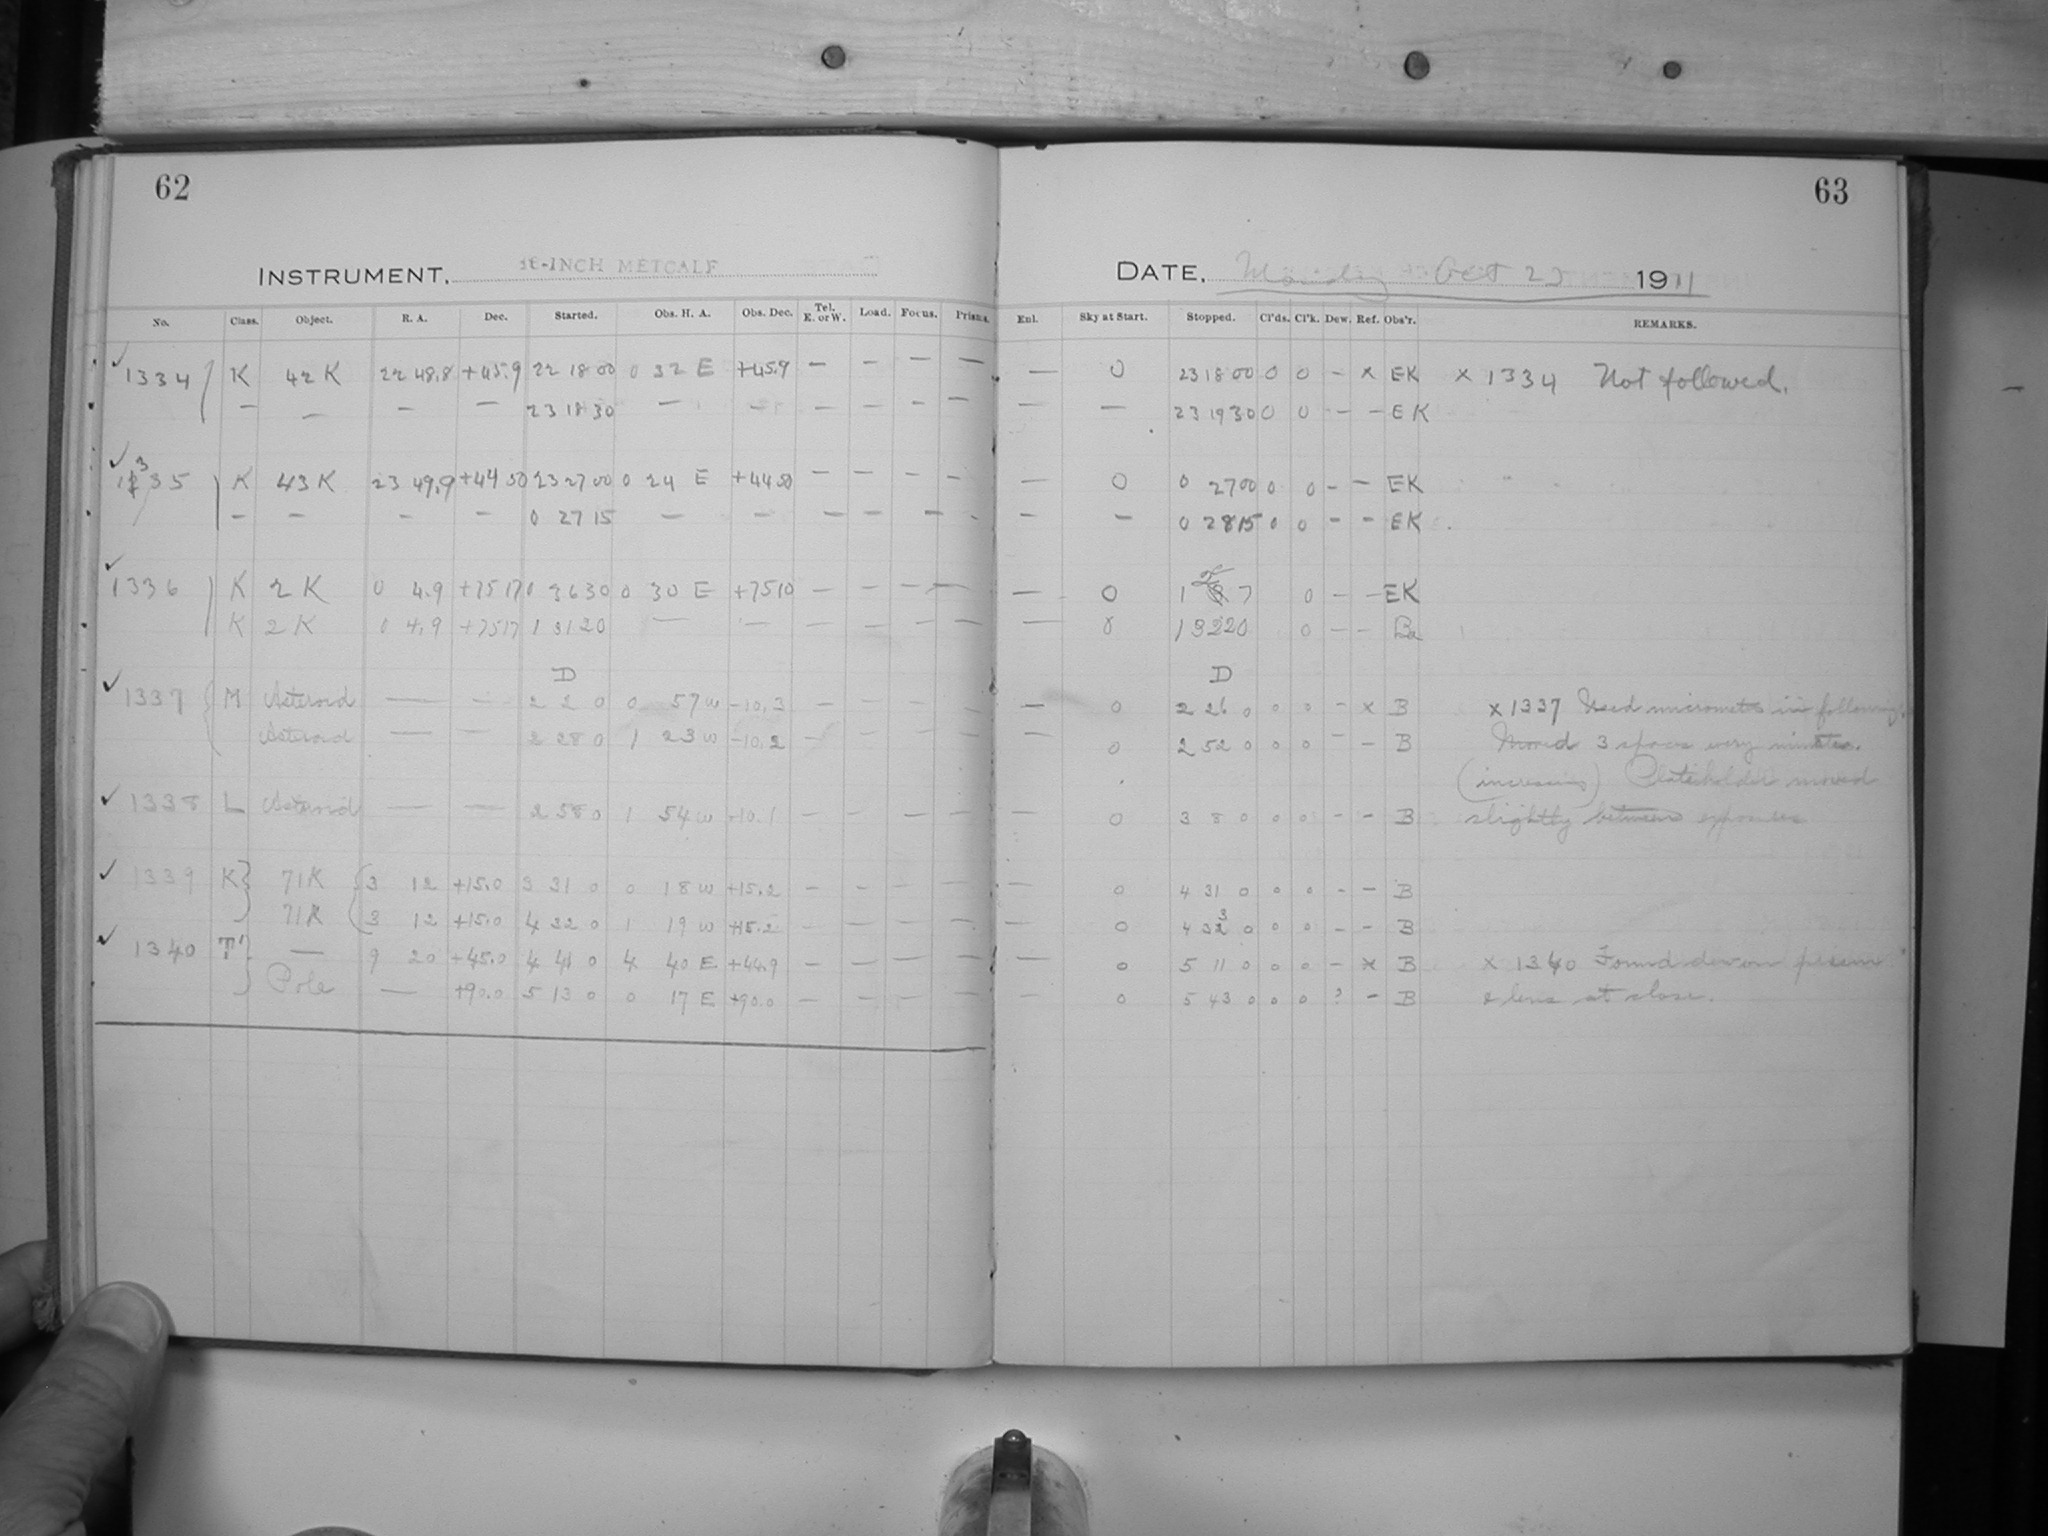 62
INSTRUMENT, 16-INCH METCALF
No. Class. Object. R. A. Dec. Started. Obs. H. A. Obs. Dec. Tel. E. or W. Load. Focus. Prisms.
1334 K 42 K 22 48.8 +45.9 22 18 00 0 32 E +45.9 — — — —
— — — — 23 18 30 — — — — — —
1335 K 43 K 23 49.9 +44 50 23 27 00 0 24 E +44 50 — — — —
— — — — 0 27 15 — — — — — —
1336 K 2 K 0 4.9 +75 17 0 36 30 0 30 E +75 10 — — — —
K 2 K 0 4.9 +75 17 1 31 20 — — — — — —
D
1337 M Asteroid — — 2 2 0 0 57 W -10.3 — — — —
Asteroid — — 2 28 0 1 23 W -10.2 — — — —
1338 L Asteroid — — 2 58 0 1 54 W -10.1 — — — —
1339 K 71K 3 12 +15.0 3 31 0 0 18 W +15.2 — — — —
71K 3 12 +15.0 4 32 0 1 19 W +15.2 — — — —
1340 T' — 9 20 +45.0 4 41 0 4 40 E +44.9 — — — —
Pole — +90.0 5 13 0 0 17 E +90.0 — — — —
63
DATE, Monday Oct 1911
Enl. Sky at Start. Stopped. Cl'ds. Cl'k. Dew. Ref. Obs'r. REMARKS.
— 0 23 18 00 0 0 – x EK x 1334 Not followed.
— — 23 19 30 0 0 – – EK
— 0 0 27 00 0 0 – – EK
— — 0 28 15 0 0 – – EK
— 0 1 7 0 – – EK
— 8 1 32 20 0 – – Ba
D
— 0 2 26 0 0 0 – x B x 1337 Used micrometer in following.
— 0 2 52 0 0 0 – – B Moved 3 spaces every minute.
(increasing) Plateholder moved
— 0 3 8 0 0 0 – – B slightly between exposures
— 0 4 31 0 0 0 – – B
— 0 4 33 0 0 0 – – B
— 0 5 11 0 0 0 – x B x 1340 Found dew on prism
— 0 5 43 0 0 0 ? – B & lens at close.